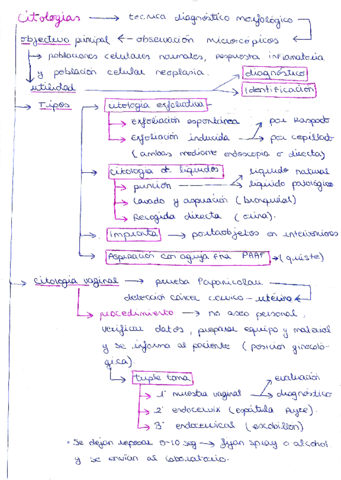 Citologías → técnica diagnóstico morfológico
objectivo principal ← observación microscópicos
→ poblaciones celulares normales, respuesta inflamatoria
y población celular neoplasia. diagnóstico
utilidad identificación
→ Tipos → citología exfoliativa
→ exfoliación espontánea → por raspado
→ exfoliación inducida → por cepillado
(ambas mediante endoscopia o directa)
→ citología de líquidos → líquido natural
→ punción → líquido patológico
→ Lavado y aspiración (bronquial)
→ Recogida directa (orina).
→ Impronta → portaobjetos en interiores
→ Aspiración con aguja fina PAAF → (quiste)
→ Citología vaginal → prueba Papanicolau
detección cáncer cérvico-uterino
→ procedimiento → no aseo personal,
verificar datos, preparar equipo y material
y se informa al paciente (posición ginecoló-
gica).
→ triple toma → evaluación
→ 1º muestra vaginal → diagnóstico
→ 2º endocervix (espátula Ayre).
→ 3º endocervical (escobillón)
• Se dejan reposar 5-10 seg → fijan spray o alcohol
y se envían al laboratorio.